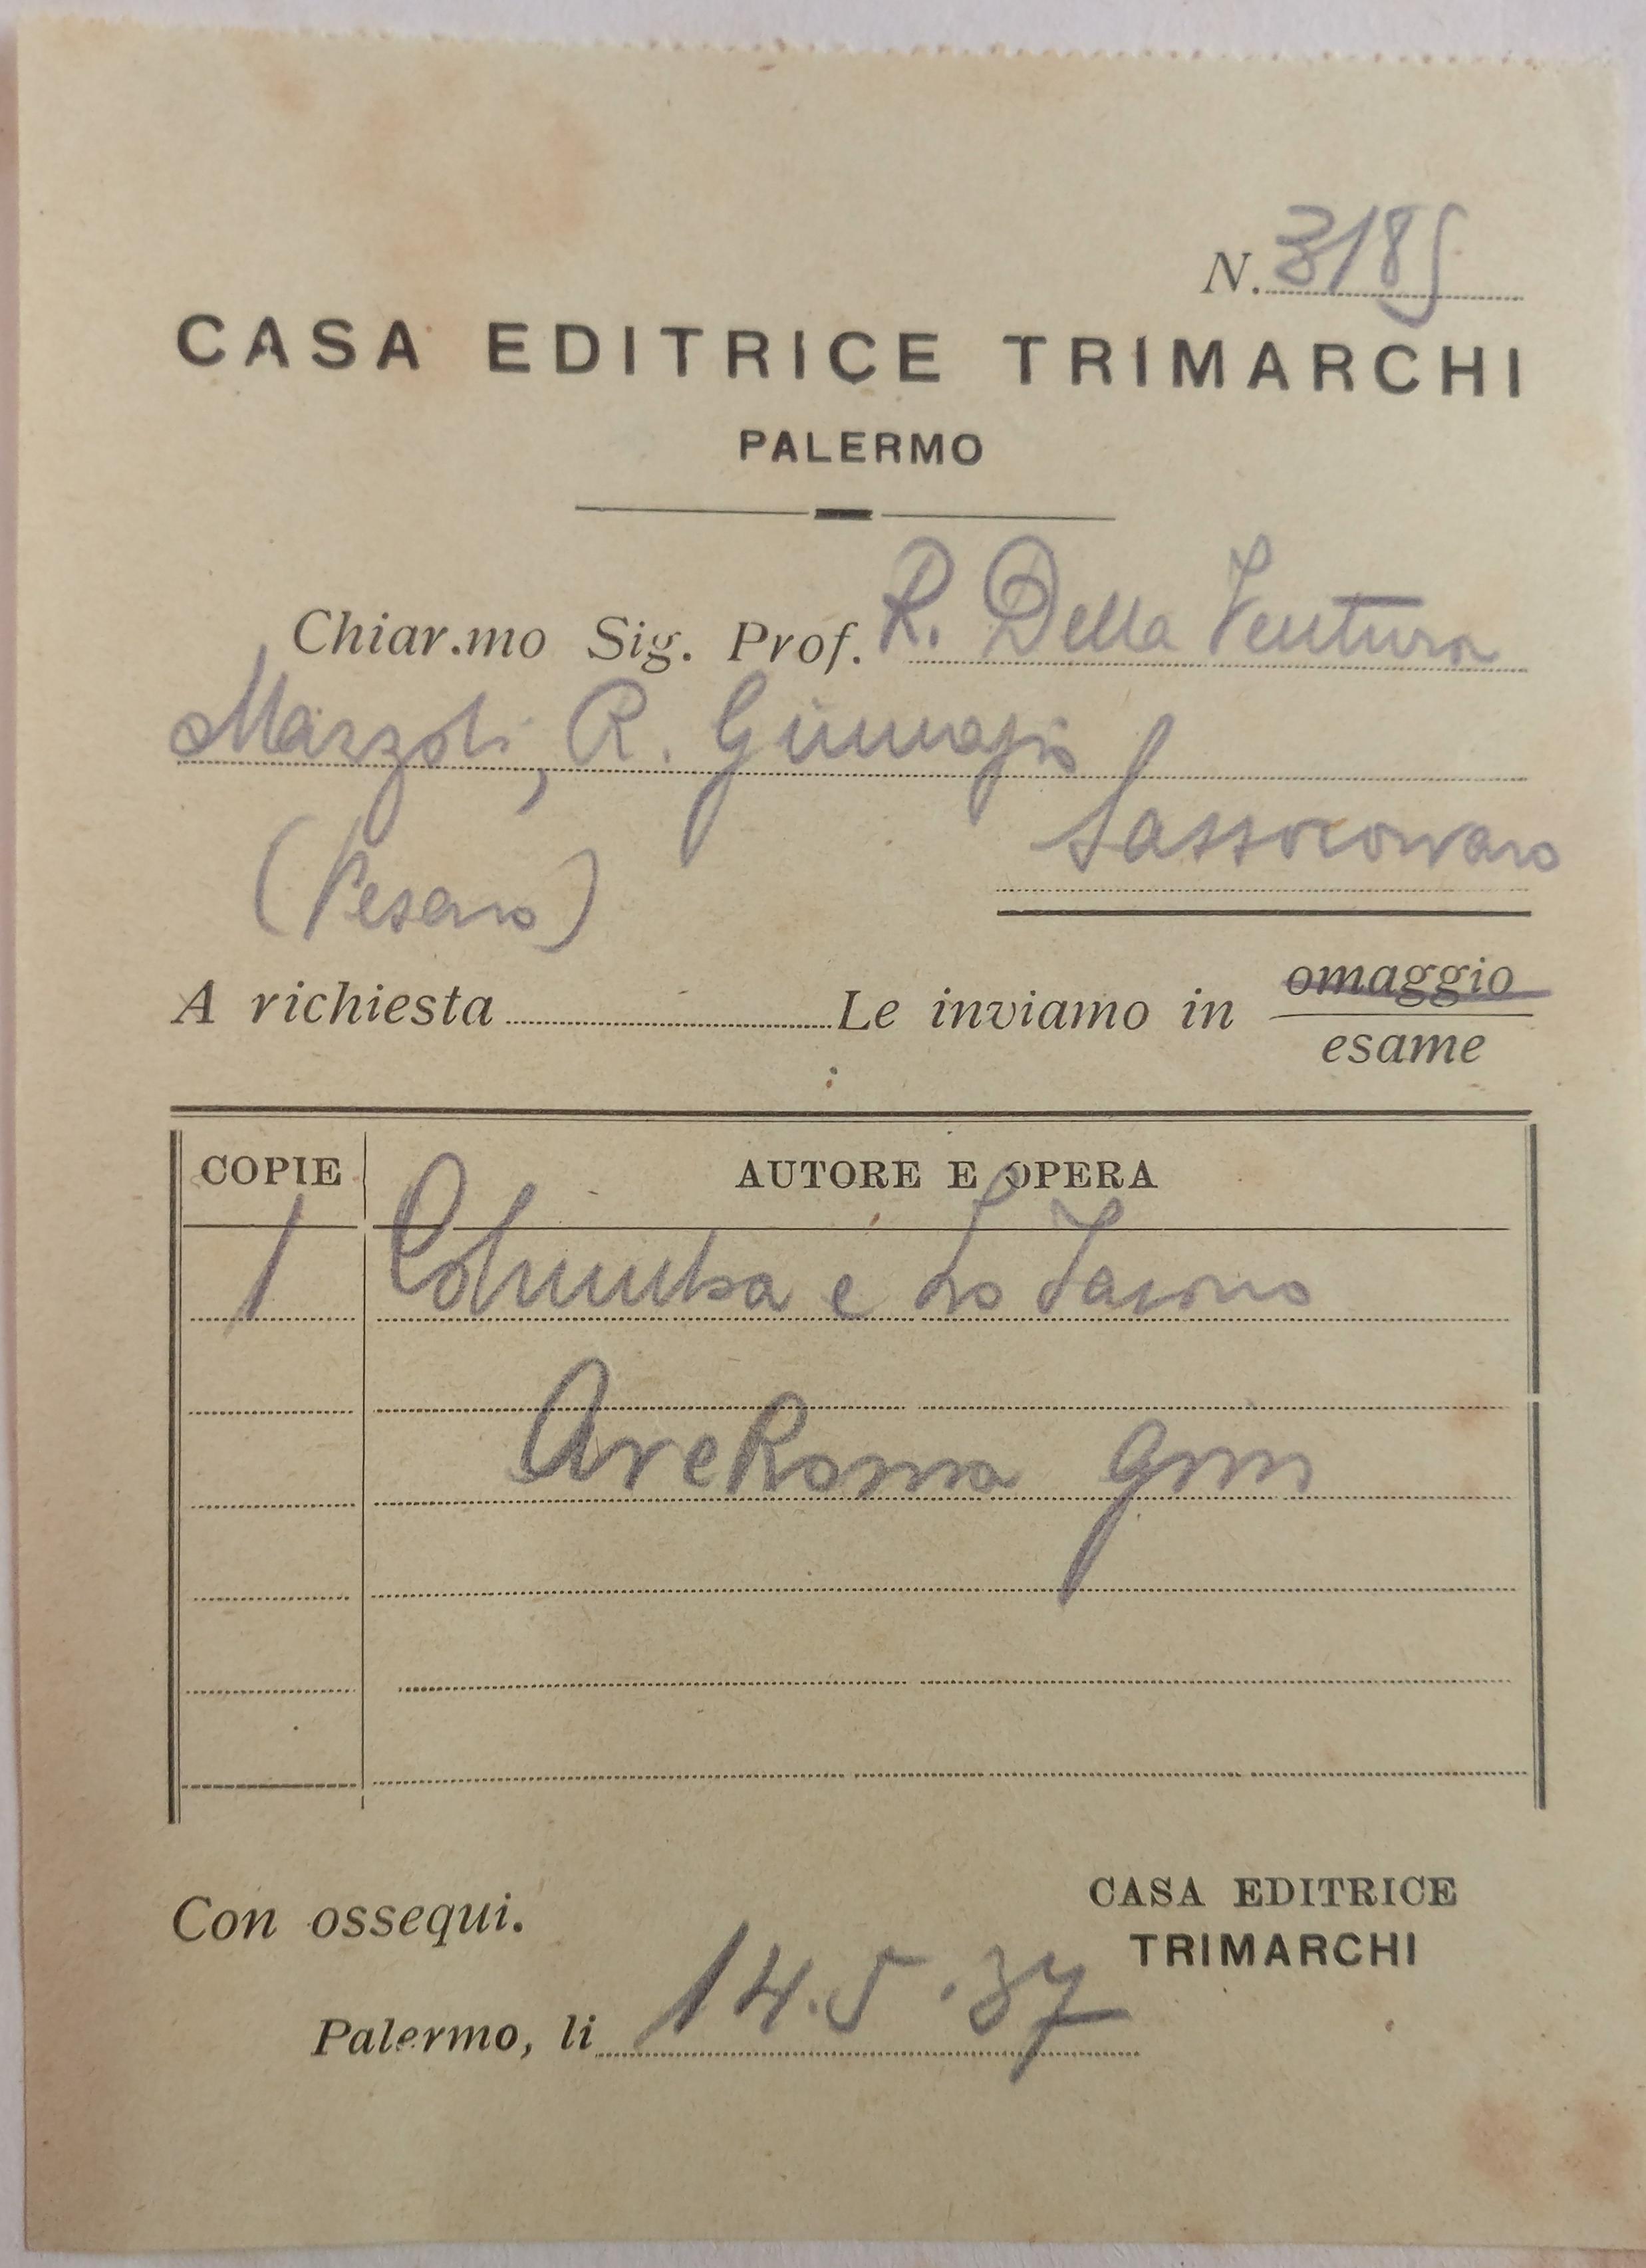 N. 3185
CASA EDITRICE TRIMARCHI
PALERMO
Chiar.mo Sig. Prof. R. Della Ventura
Mazzoli, R. Ginnasio
Sassocorvaro
(Pesaro)
A richiesta Le inviamo in omaggio
esame
COPIE AUTORE E OPERA
1 Columba e Lo Iacono
Ave Roma ginn
Con ossequi.
CASA EDITRICE
TRIMARCHI
Palermo, li 14.5.37